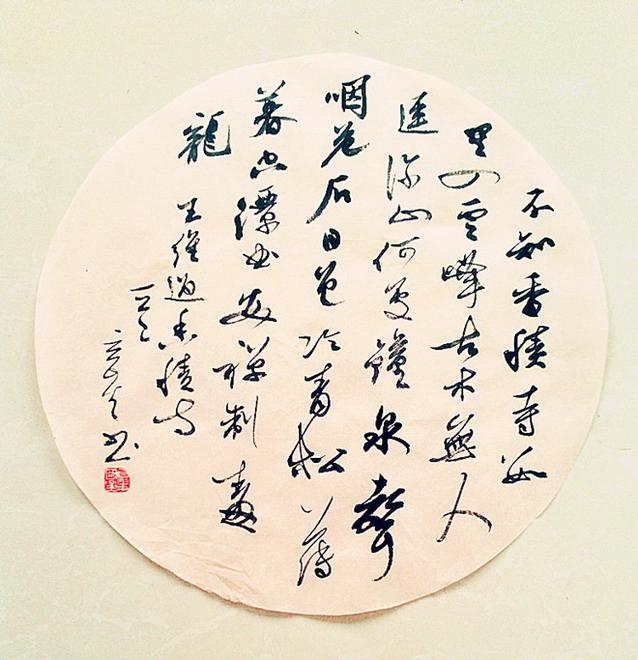 不知香積寺數
里入雲峰古木無人
逕深山何處鐘泉聲
咽危石日色冷青松薄
暮空潭曲安禪制毒
龍
王維過香積寺
书